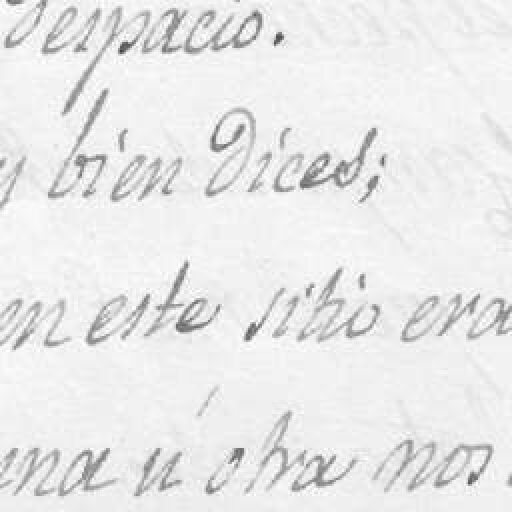 despacio.
y bien dices;
en este sitio era
una ú otra nos